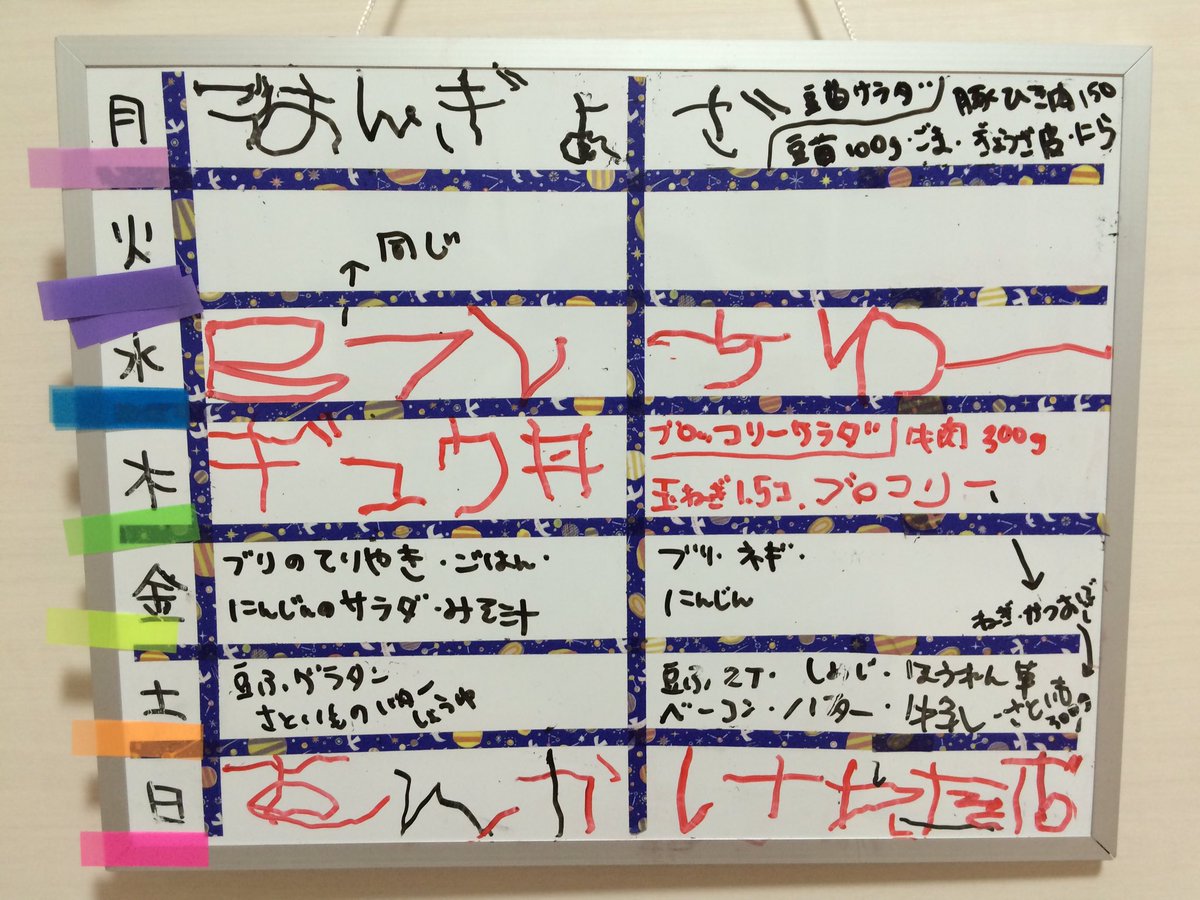 月
ごはん ぎょ ざ
豆苗サラダ 豚ひき肉 150
豆苗100g・ごま・ぎょうざ皮・にら
火
↑ 同じ
水
木
ギュウ丼
ブロッコリーサラダ 牛肉 300g
玉ねぎ1.5コ、ブロコリー
金
ブリのてりやき・ごはん・
にんじんのサラダ・みそ汁
ブリ・ネギ・
にんじん
ねぎ・かつおぶし
土
豆ふグラタン
さといもの バターしょうゆ
豆ふ2丁・しめじ・ほうれん草
ベーコン・バター・牛乳 さといも
300g
日